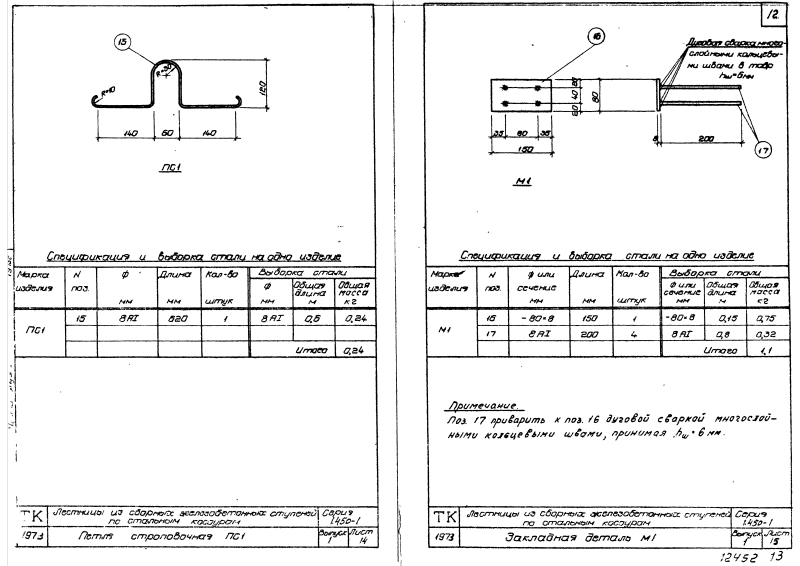 15
R=30
R=10
120
140
60
140
ПС1
Спецификация и выборка стали на одно изделие
Марка изделия
N поз.
ф мм
Длина мм
Кол-во штук
Выборка стали
ф мм
Общая длина м
Общая масса кг
ПС1
15 8АI 620 1 8АI 0,6 0,24
Итого 0,24
ТК
Лестницы из сборных железобетонных ступеней
по стальным косоурам
Серия
1.450-1
1973
Петля строповочная ПС1
Выпуск
1
Лист
14
12.
16
Дуговая сварка много-
слойными кольцевы-
ми швами в тавр
hш=6мм
20
40
20
80
35
80
35
150
8
200
17
М1
Спецификация и выборка стали на одно изделие
Марка изделия
N поз.
ф или сечение мм
Длина мм
Кол-во штук
Выборка стали
ф или сечение мм
Общая длина м
Общая масса кг
М1
16 -80×8 150 1 -80×8 0,15 0,75
17 8АI 200 4 8АI 0,8 0,32
Итого 1,1
Примечание.
Поз. 17 приварить к поз. 16 дуговой сваркой многослой-
ными кольцевыми швами, принимая hш=6 мм.
ТК
Лестницы из сборных железобетонных ступеней
по стальным косоурам
Серия
1.450-1
1973
Закладная деталь М1
Выпуск
1
Лист
15
12452 13